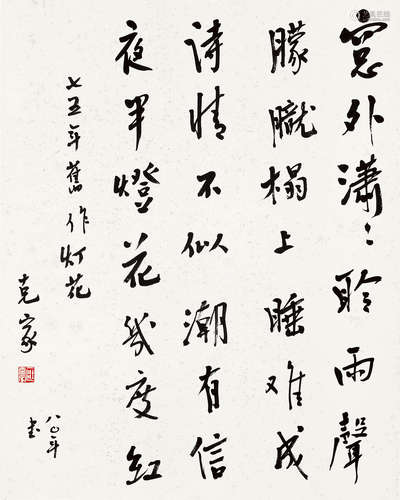 窓外瀟〻聆雨聲
朦朧榻上睡难成
诗情不似潮有信
夜半燈花幾度红
七五年舊作灯花
克家
八〇年
书